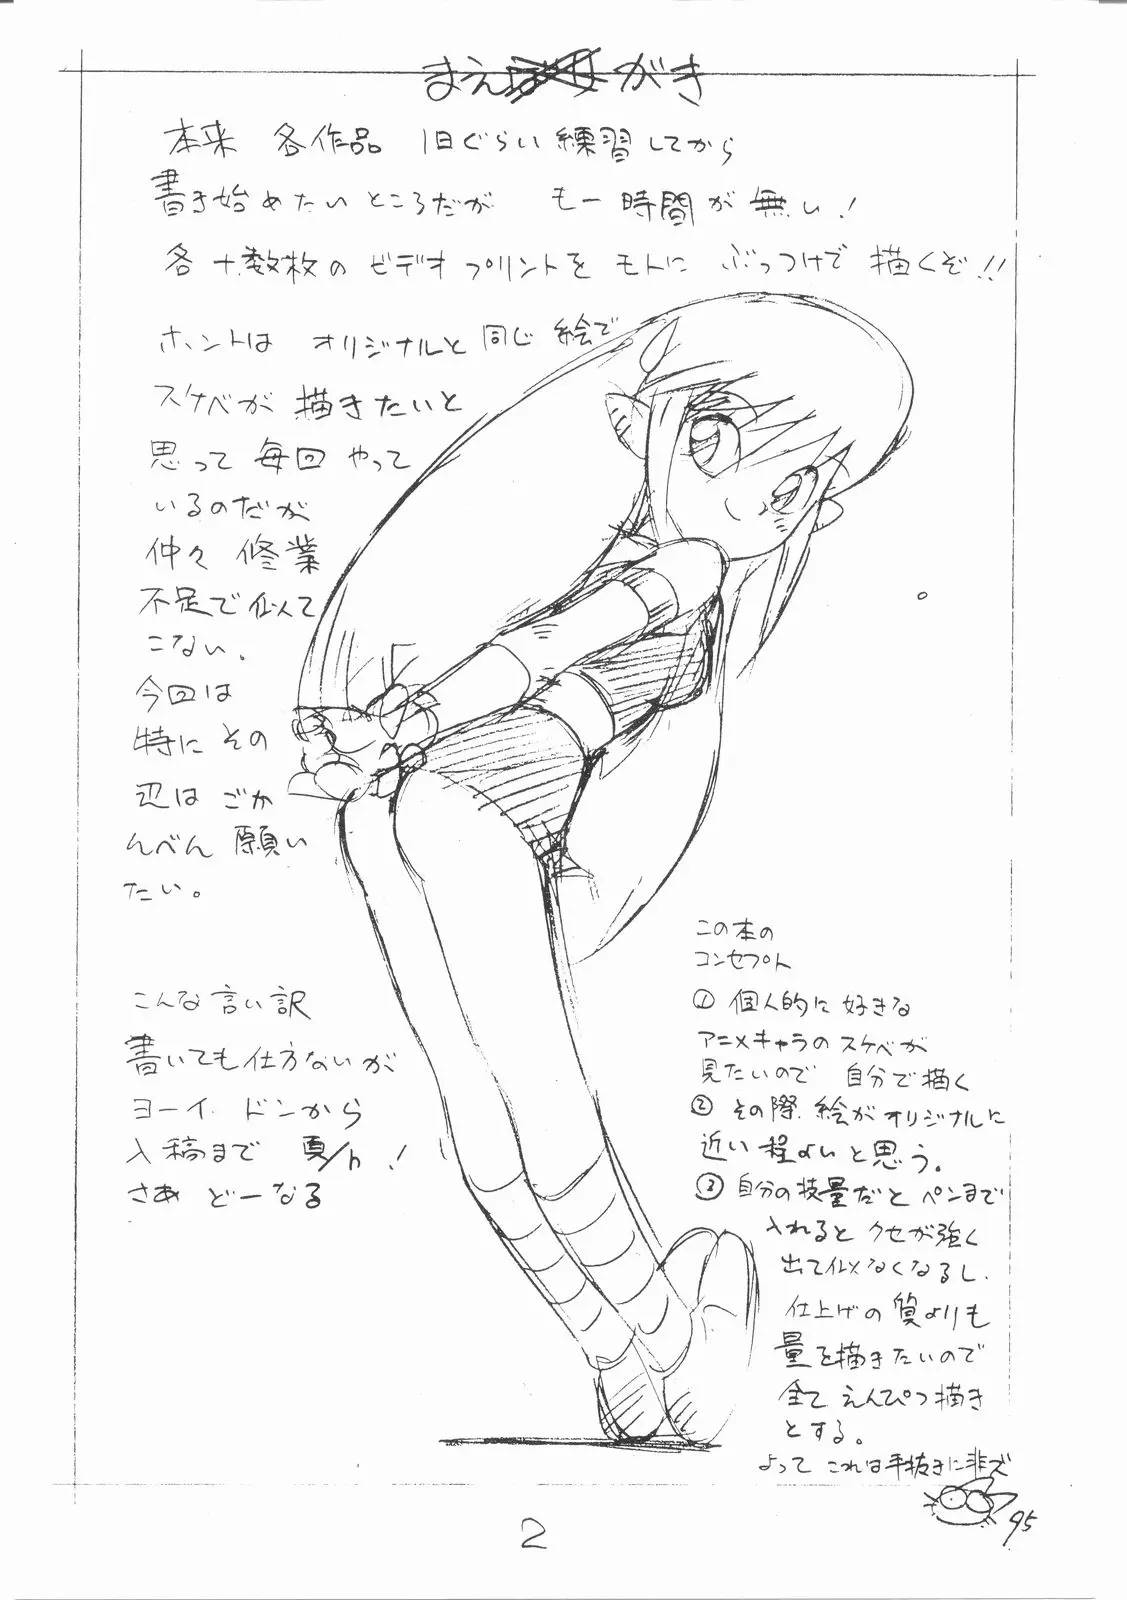 まえがき
本来 各作品 1日ぐらい練習してから
書き始めたいところだが もー時間が無い!
各十数枚の ビデオプリントを モトに ぶっつけで 描くぞ!!
ホントは オリジナルと同じ 絵で
スケベが 描きたいと
思って 毎回 やって
いるのだが
仲々 修業
不足で似て
こない。
今回は
特に その
辺は ごか
んべん 願い
たい。
こんな言い訳
書いても仕方ないが
ヨーイ ドンから
入稿まで !
さあ どーなる
この本の
コンセプト
① 個人的に 好きな
アニメキャラの スケベが
見たいので 自分で描く
② その際 絵が オリジナルに
近い程よいと思う。
③ 自分の技量だと ペンまで
入れると クセが強く
出て似なくなるし、
仕上げの質よりも
量を描きたいので
全て えんぴつ描き
とする。
よって これは手抜きに非ズ
95
2